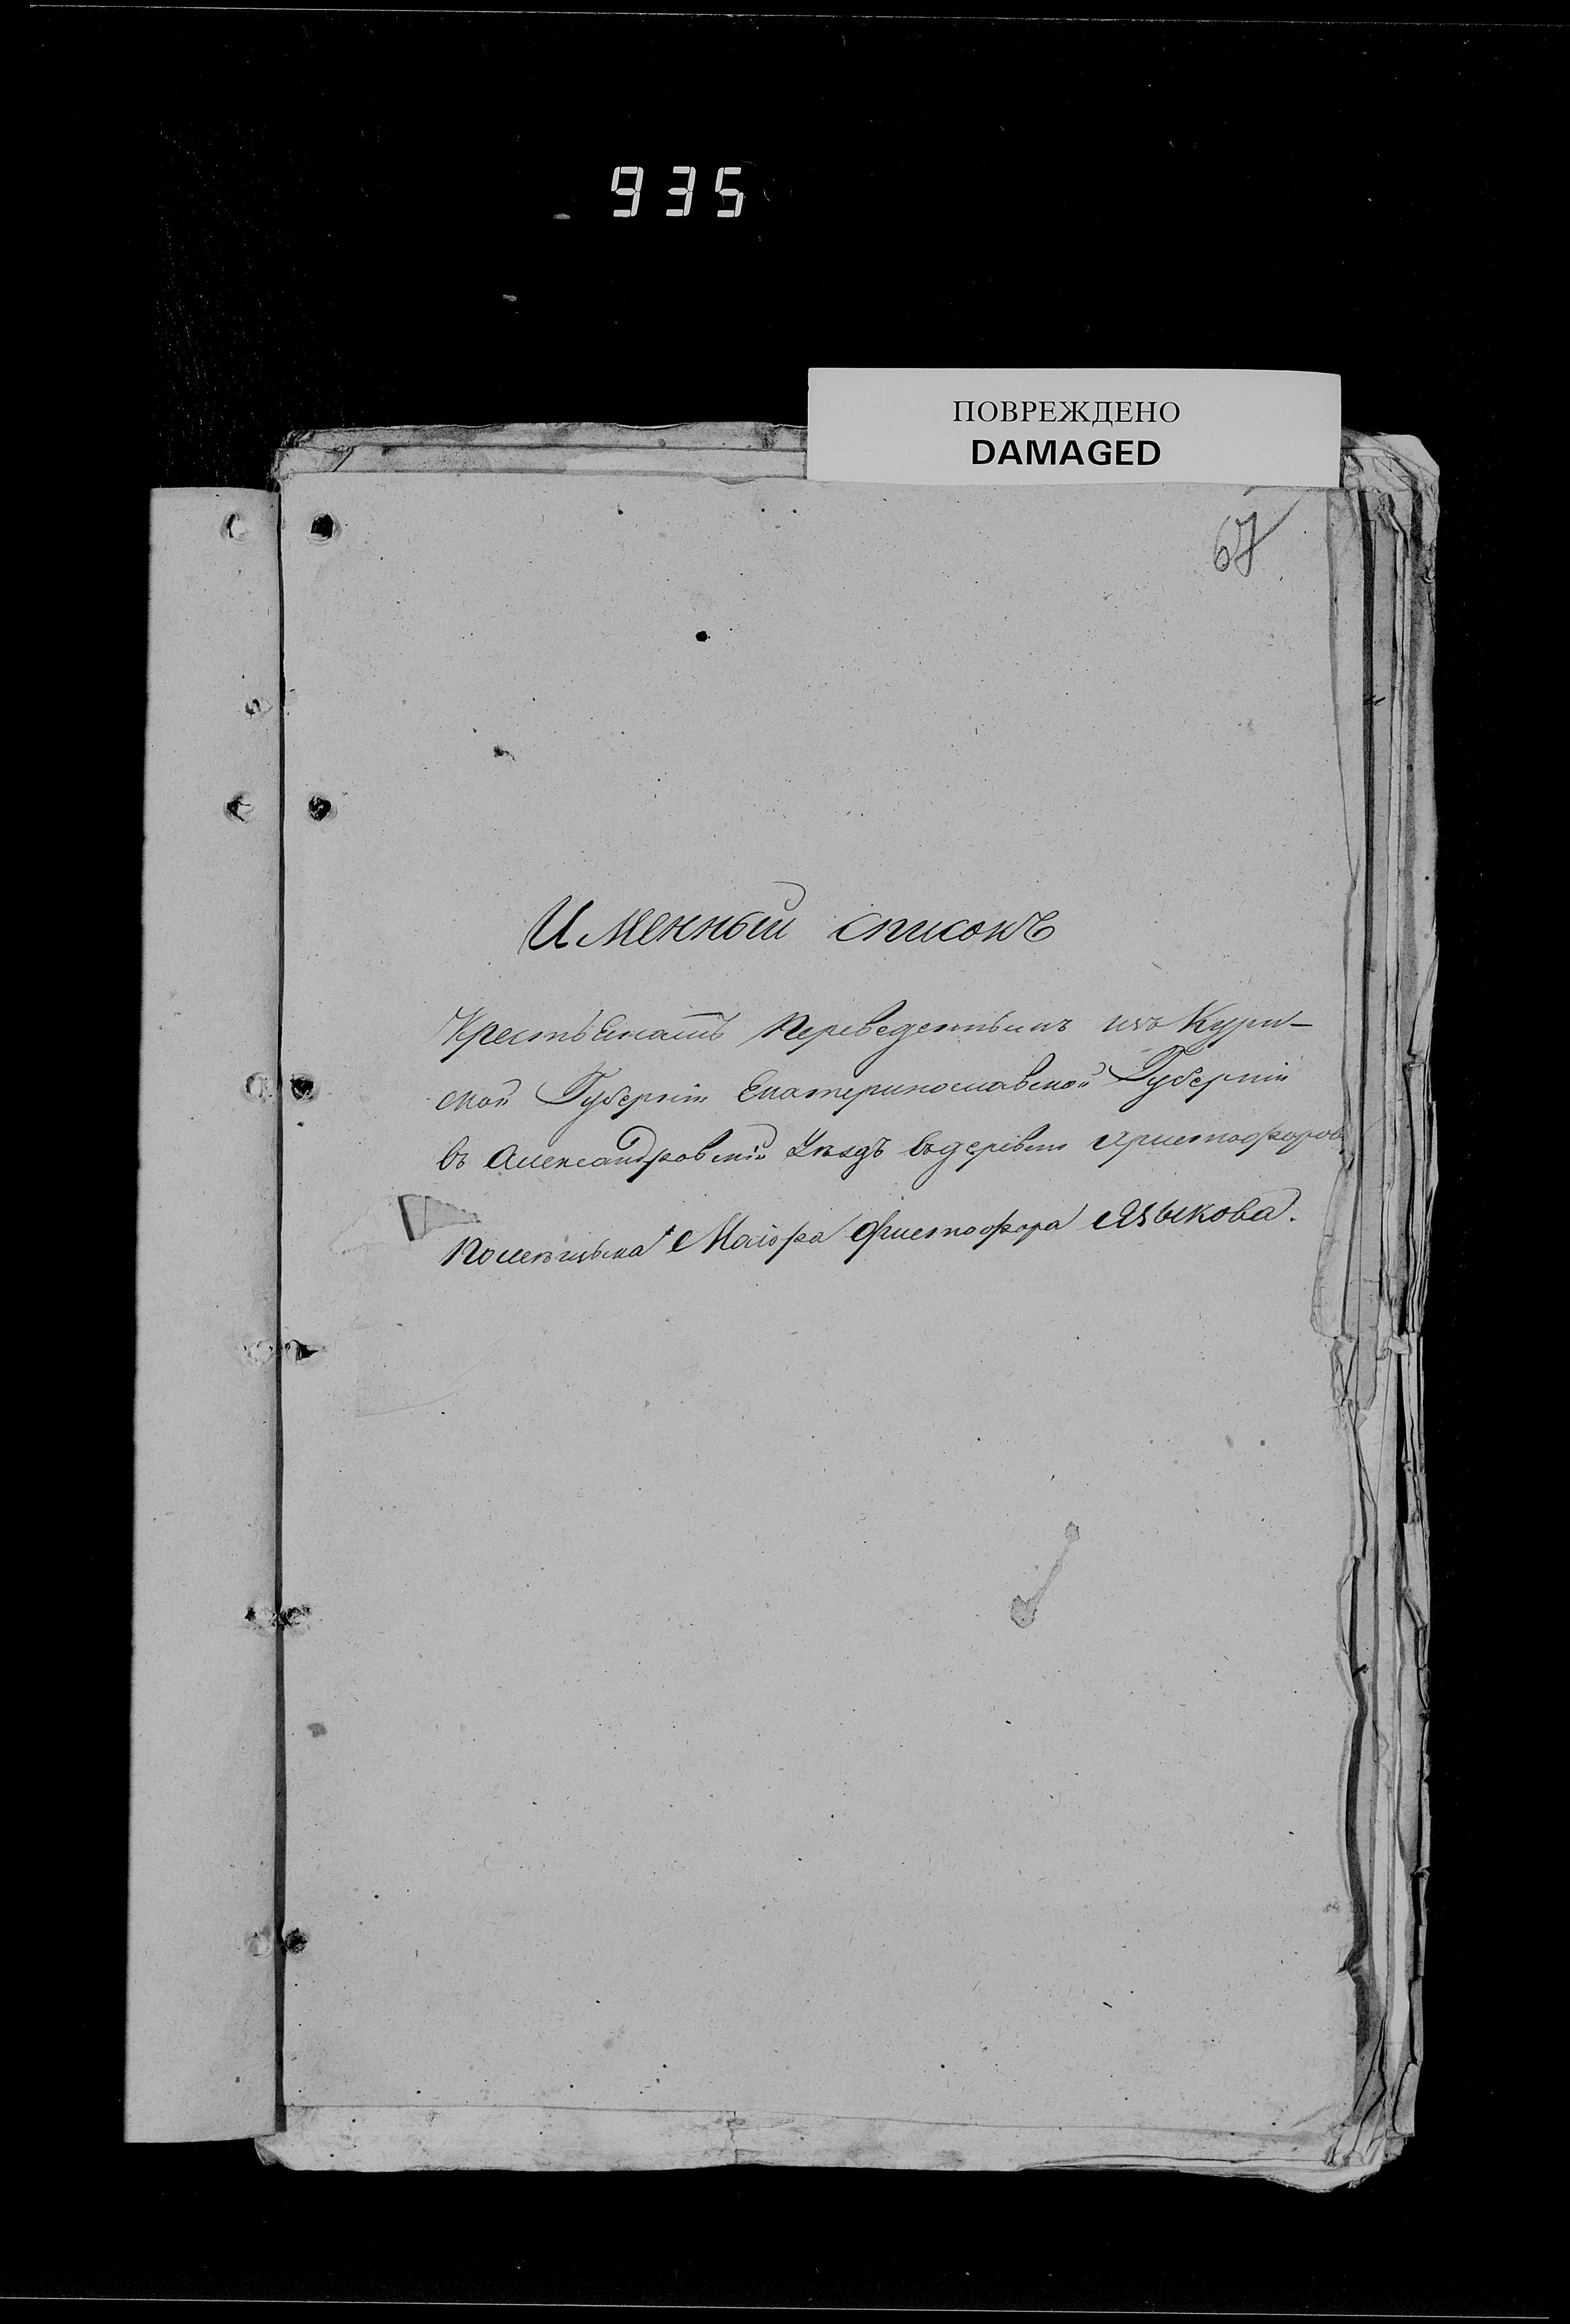 935
ПОВРЕЖДЕНО
DAMAGED
67
Именный списокъ
Крестьянамъ переведеннымъ изъ Курн-
ской Губерніи Екатеринославской Губерніи
въ Александровскій Уѣздъ въ деревню Христофоров
Помѣщика Маіора Христофора Языкова.